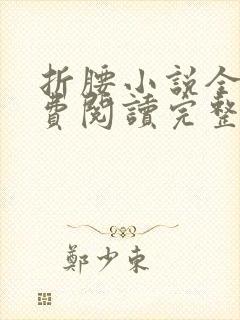 折腰小說全
費閱讀完整
鄭少東